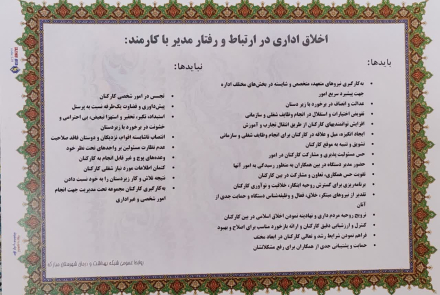 اخلاق اداری در ارتباط و رفتار مدیر با کارمند:
بایدها:
به‌کارگیری نیروهای متعهد، متخصص و شایسته در بخش‌های مختلف اداره
جهت پیشبرد سریع امور
عدالت و انصاف در برخورد با زیر دستان
تفویض اختیارات و استقلال در انجام وظایف شغلی و سازمانی
افزایش توانمندیهای کارکنان از طریق انتقال تجارب و آموزش
ایجاد انگیزه، میل و علاقه در کارکنان برای انجام وظایف شغلی و سازمانی
تشویق و تنبیه به موقع کارکنان
حس مسئولیت پذیری و مشارکت کارکنان در امور
حضور مدیر دستگاه در بین همکاران به منظور رسیدگی به امور آنها
تقویت حس همکاری، تعاون و مشارکت در بین کارکنان
برنامه‌ریزی برای گسترش روحیه ابتکار، خلاقیت و نوآوری کارکنان
تقدیر از نیروهای مبتکر، خلاق، فعال و وظیفه‌شناس دستگاه و حمایت جدی از
آنان
ترویج روحیه مردم داری و نهادینه نمودن اخلاق اسلامی در بین کارکنان
کنترل و ارزشیابی دقیق کارکنان و ارائه بازخورد مناسب برای اصلاح و بهبود
فراهم نمودن شرایط رشد و تعالی کارکنان در ابعاد مختلف
حمایت و پشتیبانی جدی از همکاران برای رفع مشکلاتشان
نبایدها:
تجسس در امور شخصی کارکنان
پیش‌داوری و قضاوت یک‌طرفه نسبت به پرسنل
استبداد، تکبر، تحقیر و استهزا، تبعیض، بی احترامی و
خشونت در برخورد با زیردستان
انتصاب ناشایسته اقوام، نزدیکان و دوستان فاقد صلاحیت
عدم نظارت مسئولین بر واحدهای تحت نظر خود
وعده‌های پوچ و غیر قابل انجام به کارکنان
کتمان اطلاعات مورد نیاز شغلی کارکنان
نتیجه تلاش و کار زیردستان را به خود نسبت دادن
به‌کارگیری کارکنان مجموعه تحت مدیریت جهت انجام
امور شخصی و غیراداری
روابط عمومی شبکه بهداشت و درمان شهرستان